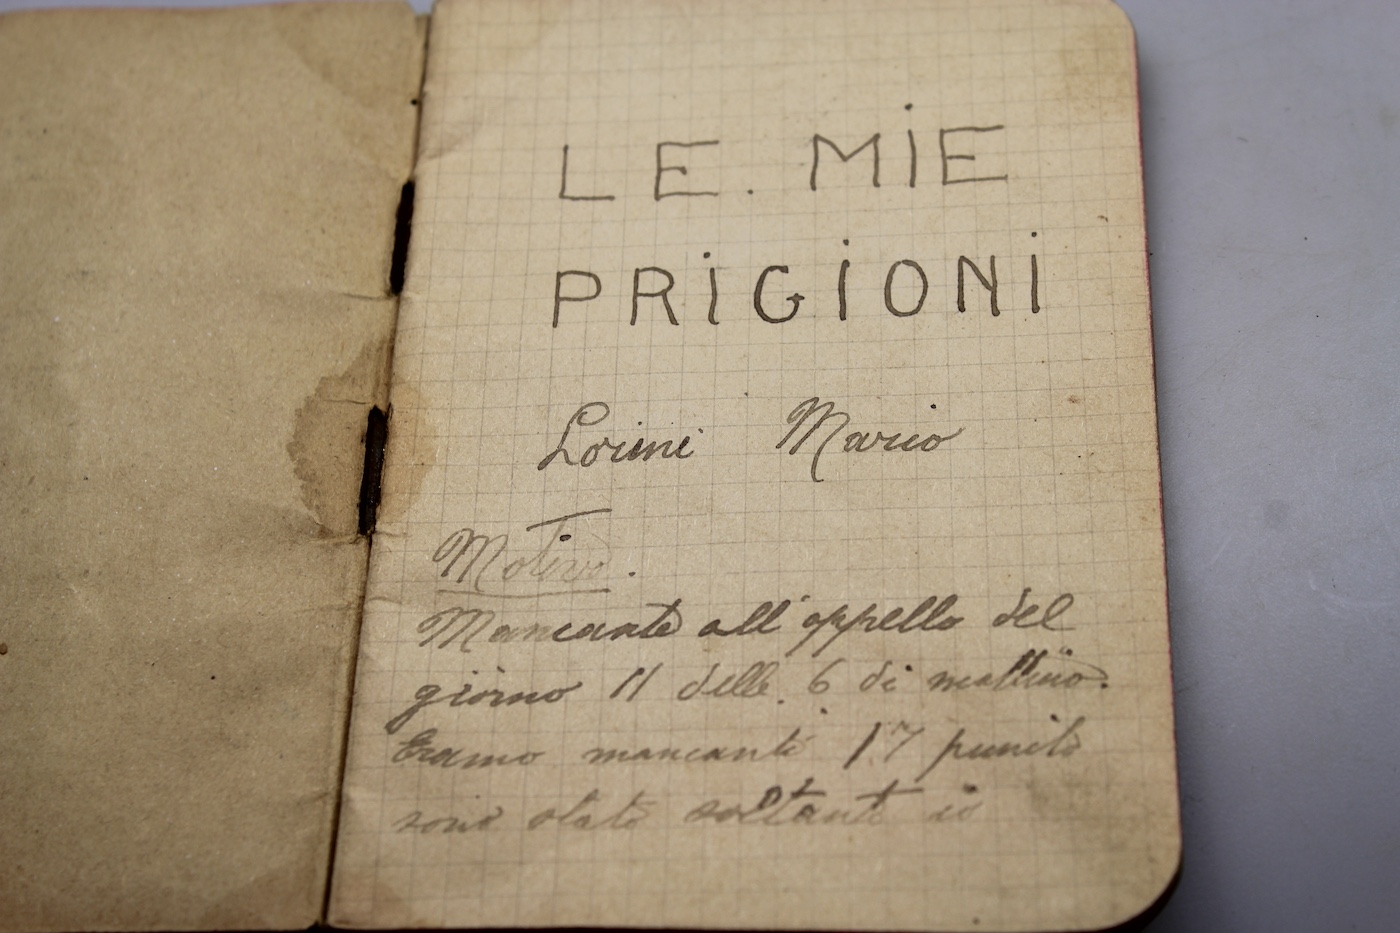 LE. MiE
PRiGiONi
Lorini Mario
Motivo.
Mancante all'appello del
giorno 11 delle 6 di mattino.
Eramo mancanti 17 punito
sono stato soltanto io